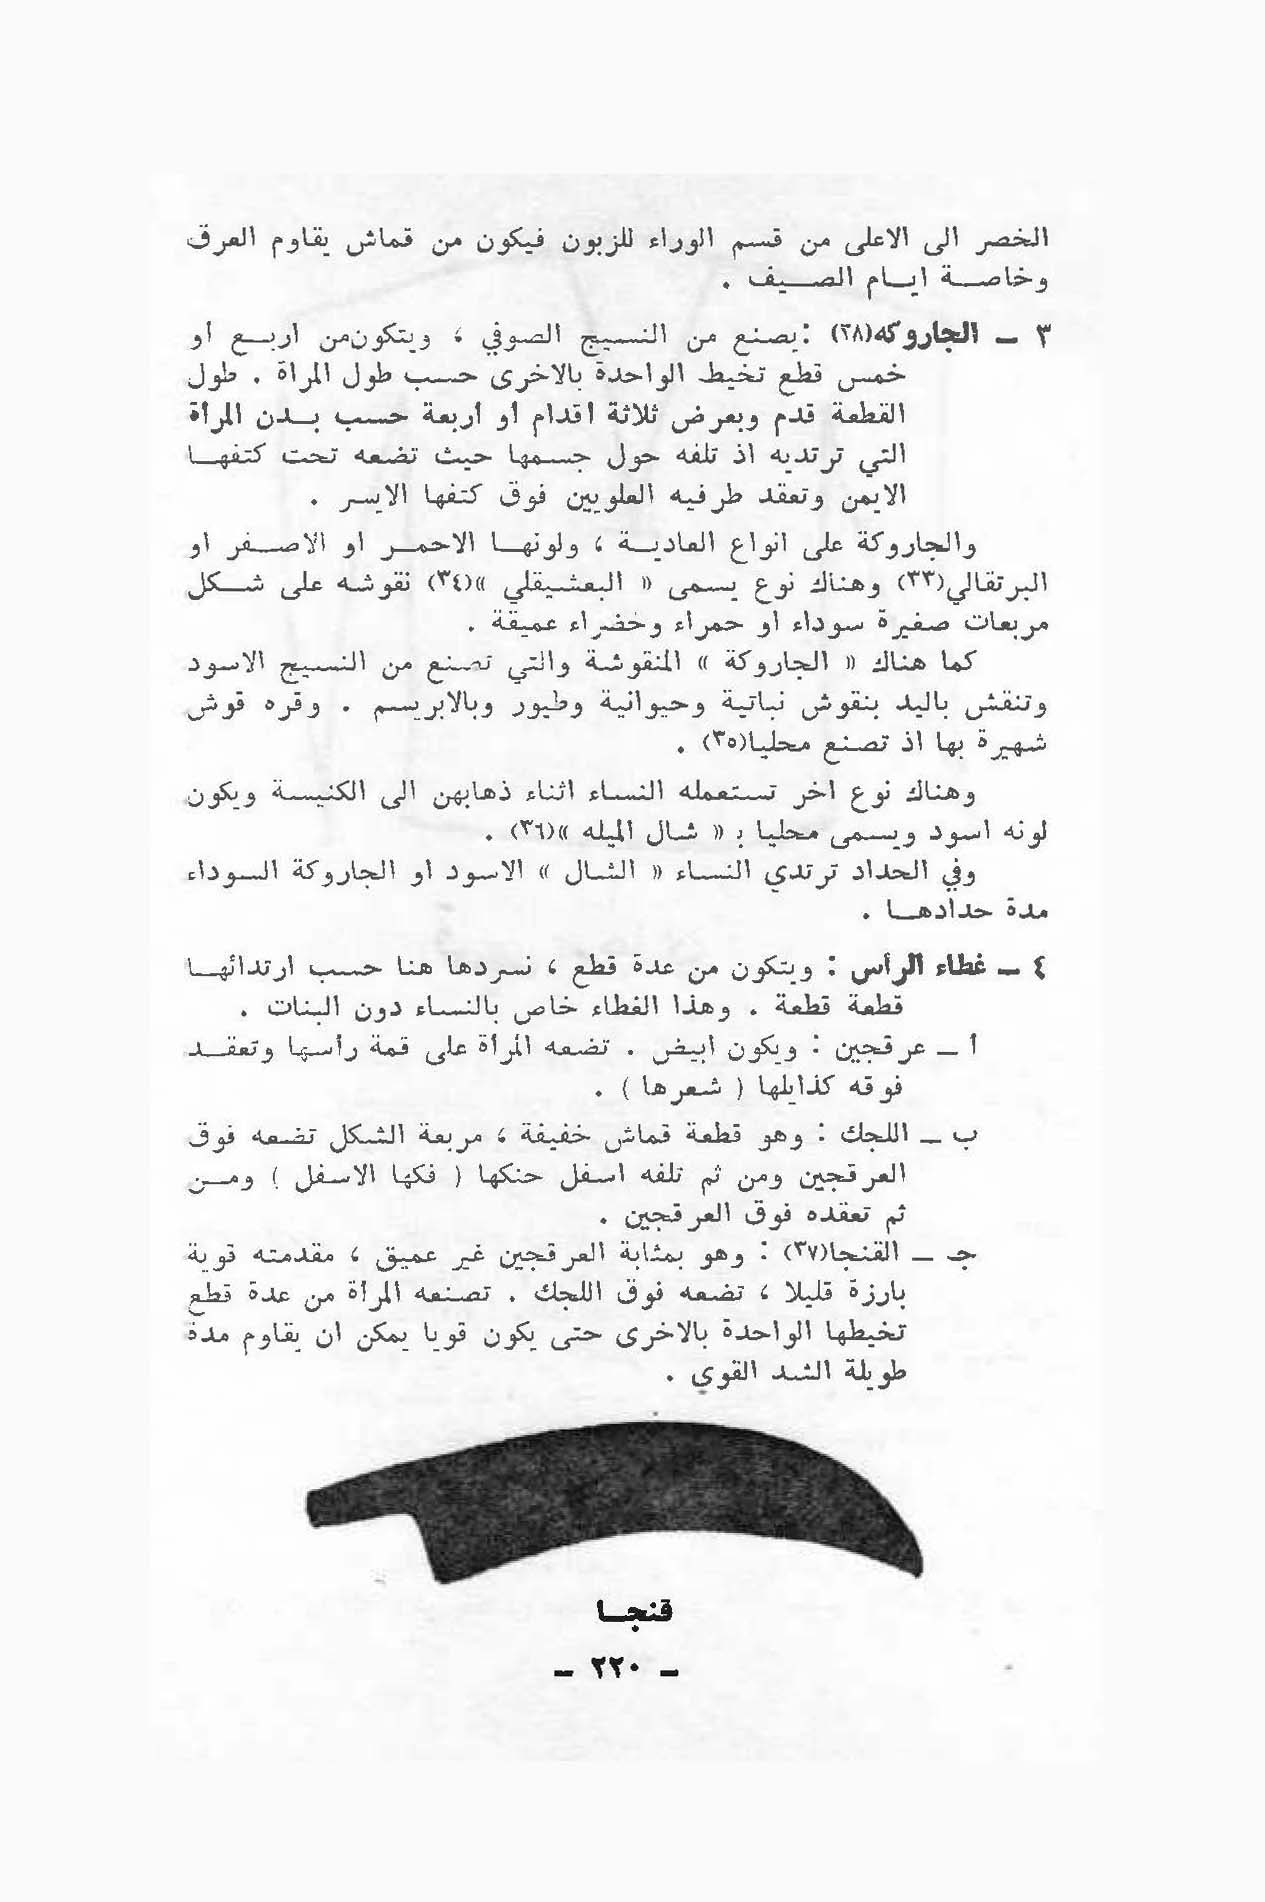 الخصر الى الاعلى من قسم الوراء للزبون فيكون من قماش يقاوم العرق
وخاصة ايام الصيف .
٣ ــ الجاروكه(٢٨) : يصنع من النسيج الصوفي ، ويتكون من اربع او
خمس قطع تخيط الواحدة بالاخرى حسب طول المرأة . طول
القطعة قدم وبعرض ثلاثة أقدام أو أربعة حسب بدن المرأة
التي ترتديه اذ تلفه حول جسمها حيث تضعه تحت كتفها
الايمن وتعقد طرفيه العلويين فوق كتفها الايسر .
والجاروكة على انواع العادية ، ولونها الاحمر او الاصفر او
البرتقالي(٣٣) وهناك نوع يسمى « البعشيقلي »(٣٤) نقوشه على شكل
مربعات صغيرة سوداء او حمراء وخضراء عميقة .
كما هناك « الجاروكة » المنقوشة والتي تصنع من النسيج الاسود
وتنقش باليد بنقوش نباتية وحيوانية وطيور وبالابريسم . وقره قوش
شهيرة بها اذ تصنع محليا(٣٥) .
وهناك نوع اخر تستعمله النساء اثناء ذهابهن الى الكنيسة ويكون
لونه اسود ويسمى محليا بـ « شال الميله »(٣٦) .
وفي الحداد ترتدي النساء « الشال » الاسود او الجاروكة السوداء
مدة حدادها .
٤ ــ غطاء الرأس : ويتكون من عدة قطع ، نسردها هنا حسب ارتدائها
قطعة قطعة . وهذا الغطاء خاص بالنساء دون البنات .
أ ــ عرقجين : ويكون ابيض . تضعه المرأة على قمة رأسها وتعقد
فوقه كذايلها ( شعرها ) .
ب ــ اللجك : وهو قطعة قماش خفيفة ، مربعة الشكل تضعه فوق
العرقجين ومن ثم تلفه اسفل حنكها ( فكها الاسفل ) ومن
ثم تعقده فوق العرقجين .
جـ ــ القنجا(٣٧) : وهو بمثابة العرقجين غير عميق ، مقدمته قوية
بارزة قليلا ، تضعه فوق اللجك . تصنعه المرأة من عدة قطع
تخيطها الواحدة بالاخرى حتى يكون قويا يمكن ان يقاوم مدة
طويلة الشد القوي .
قنجا
ــ ٢٢٠ ــ